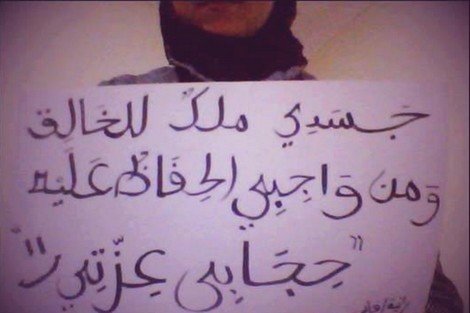 جَسَدِي ملكٌ للخَالِق
وَمن وَاجِبِي الحِفَاظ عَلَيْه
"حِجَابِي عِزّتِي"